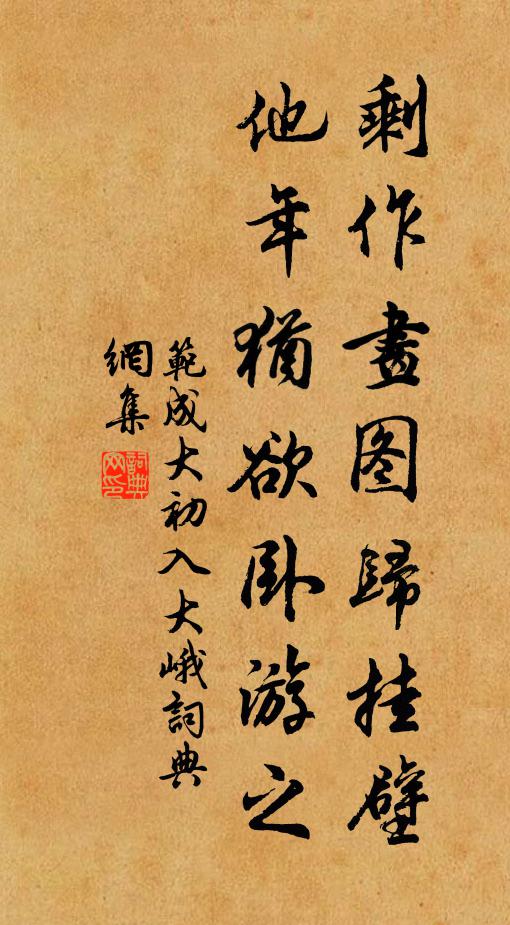 剩作畫图歸挂壁
他年猶欲卧游之
範成大初入大峨詞典
網集
詞典
网印